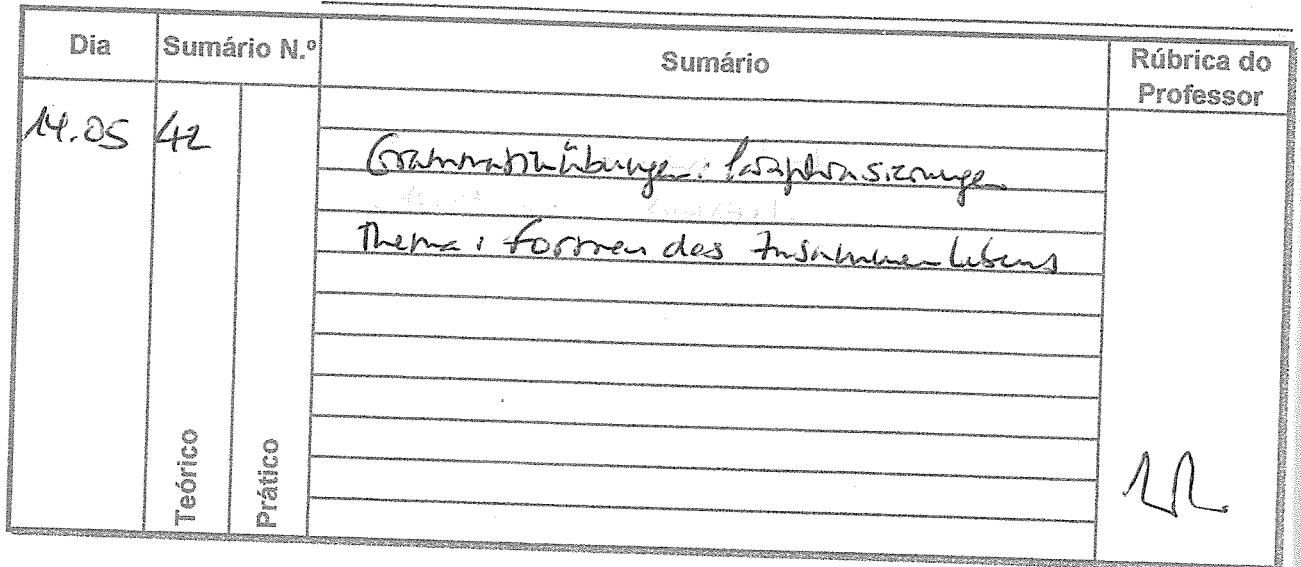 Dia Sumário N.º Sumário Rúbrica do Professor
14.05 42
Grammatikübungen: Paraphrasierungen
Thema: Formen des Zusammenlebens
Teórico
Prático